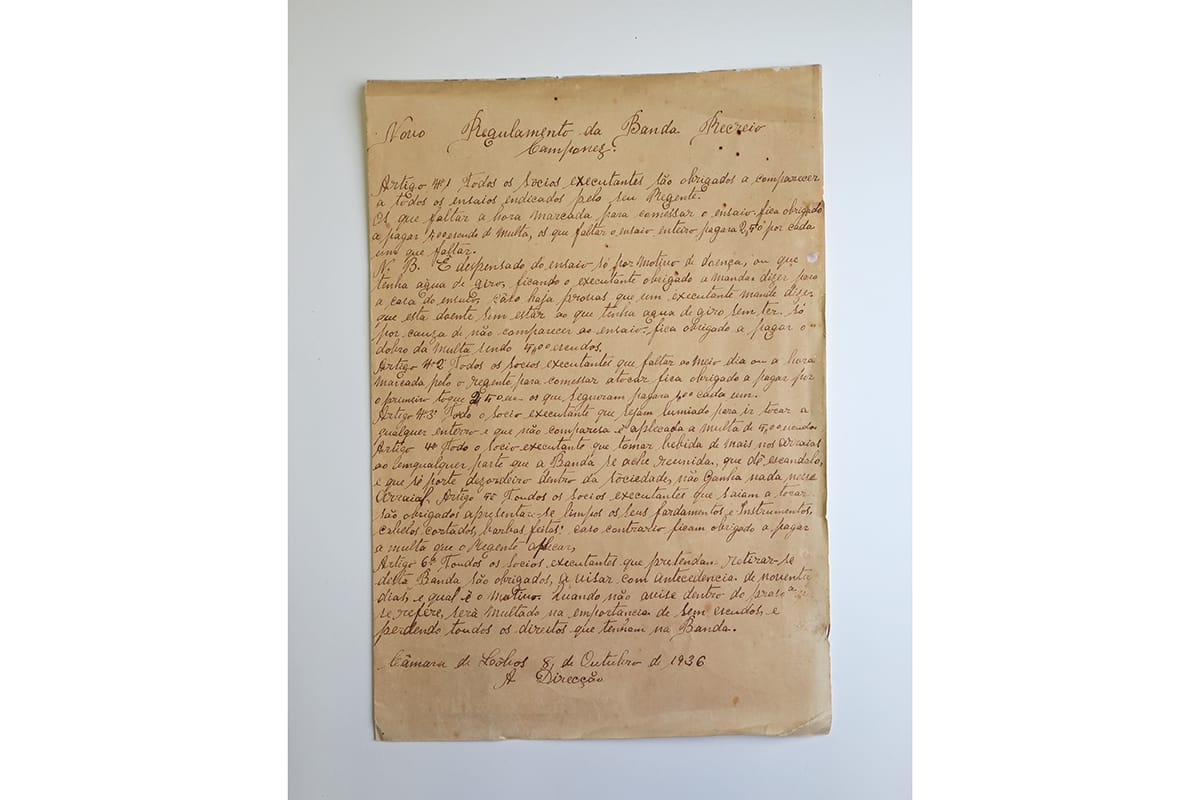 Novo Regulamento da Banda Recreio
Camponez.
Artigo Nº1 Todos os socios executantes são obrigados a comparecer
a todos os ensaios endicados pelo seu Regente.
Os que faltar a hora marcada para comessar o ensaio fica obrigado
a pagar escudo de multa, os que faltar o ensaio enteiro pagara 2,50 por cada
um que faltar.
N. B. E despensado do ensaio só por motivo de doença, ou que
tenha agua de giro, ficando o executante obrigado a mandar dizer para
a casa do ensaio, caso haja provas que um executante mande dizer
que esta doente sem estar ao que tenha agua de giro sem ter. só
por cauza de não comparecer ao ensaio, fica obrigado a pagar o
dobro da multa sendo 5,00 escudos.
Artigo Nº2 Todos os socios executantes que faltar ao meio dia ou a hora
marcada pelo o regente para comessar atocar fica obrigado a pagar por
o primeiro toque 2,50 os que seguiram pagara 1,00 cada um.
Artigo Nº3º Todo o socio executante que sejam para ir tocar a
qualquer enterro e que não comparesa é aplecada a multa de 5,00 escudos
Artigo 4º Todo o socio executante que tomar bibida de mais nos arraiais
ao emqualquer parte que a Banda se ache reunida, que dê escandalo,
e que só porte dezordeiro dentro da sociedade, não Ganha nada nesse
Arraial. Artigo 5º Toudos os socios executantes que saiam a tocar
são obrigados apresentar-se limpos os seus fardamentos, e Instrumentos,
cabelos cortados, barbas feitas: caso contrario ficam obrigado a pagar
a multa que o Regente aplicar,
Artigo 6º Toudos os socios executantes que pretendam retirar-se
desta Banda são obrigados, a visar com antecedencia de noventa
dias, e qual é o motivo. Quando não avise dentro do praso a
se refére, será multado na emportancia de sem escudos, e
perdendo toudos os direitos que tenham na Banda.
Câmara de Lôbos 8, de Outubro de 1936
A Direcção